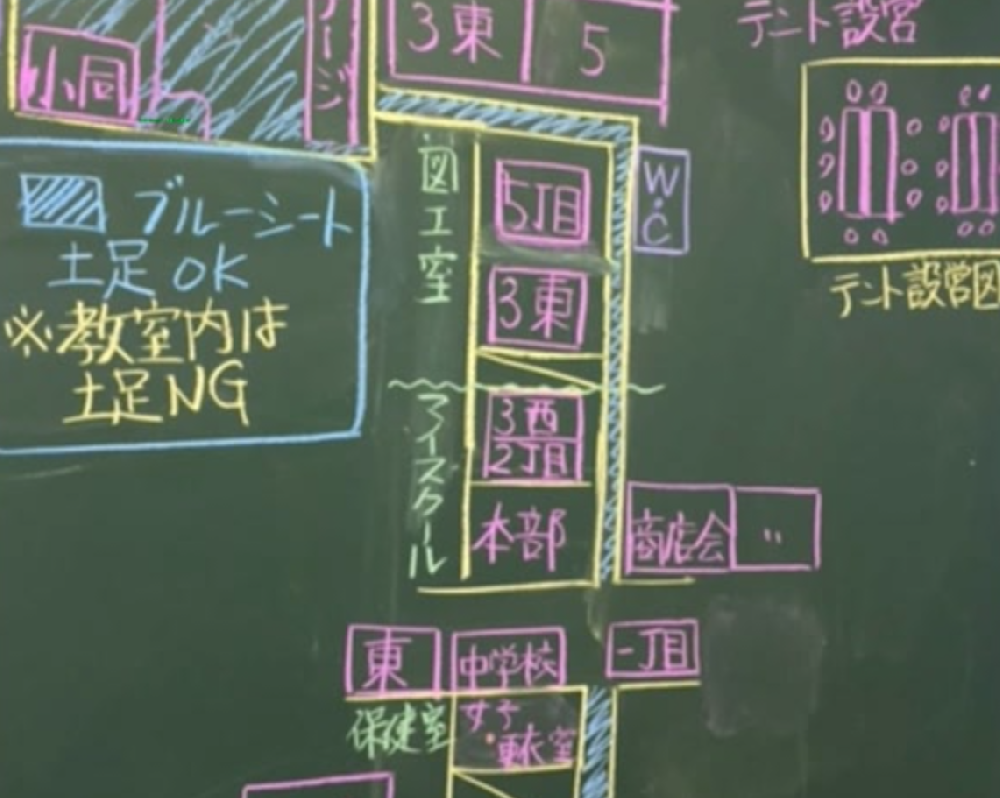 小同
ージ
3東
5
テント設営
ブルーシート
土足OK
※教室内は
土足NG
図工室
5丁目
W.C
3東
テント設営図
マイスクール
3西
2丁目
本部
商店会
〃
東
中学校
一丁目
保健室
女子
更衣室